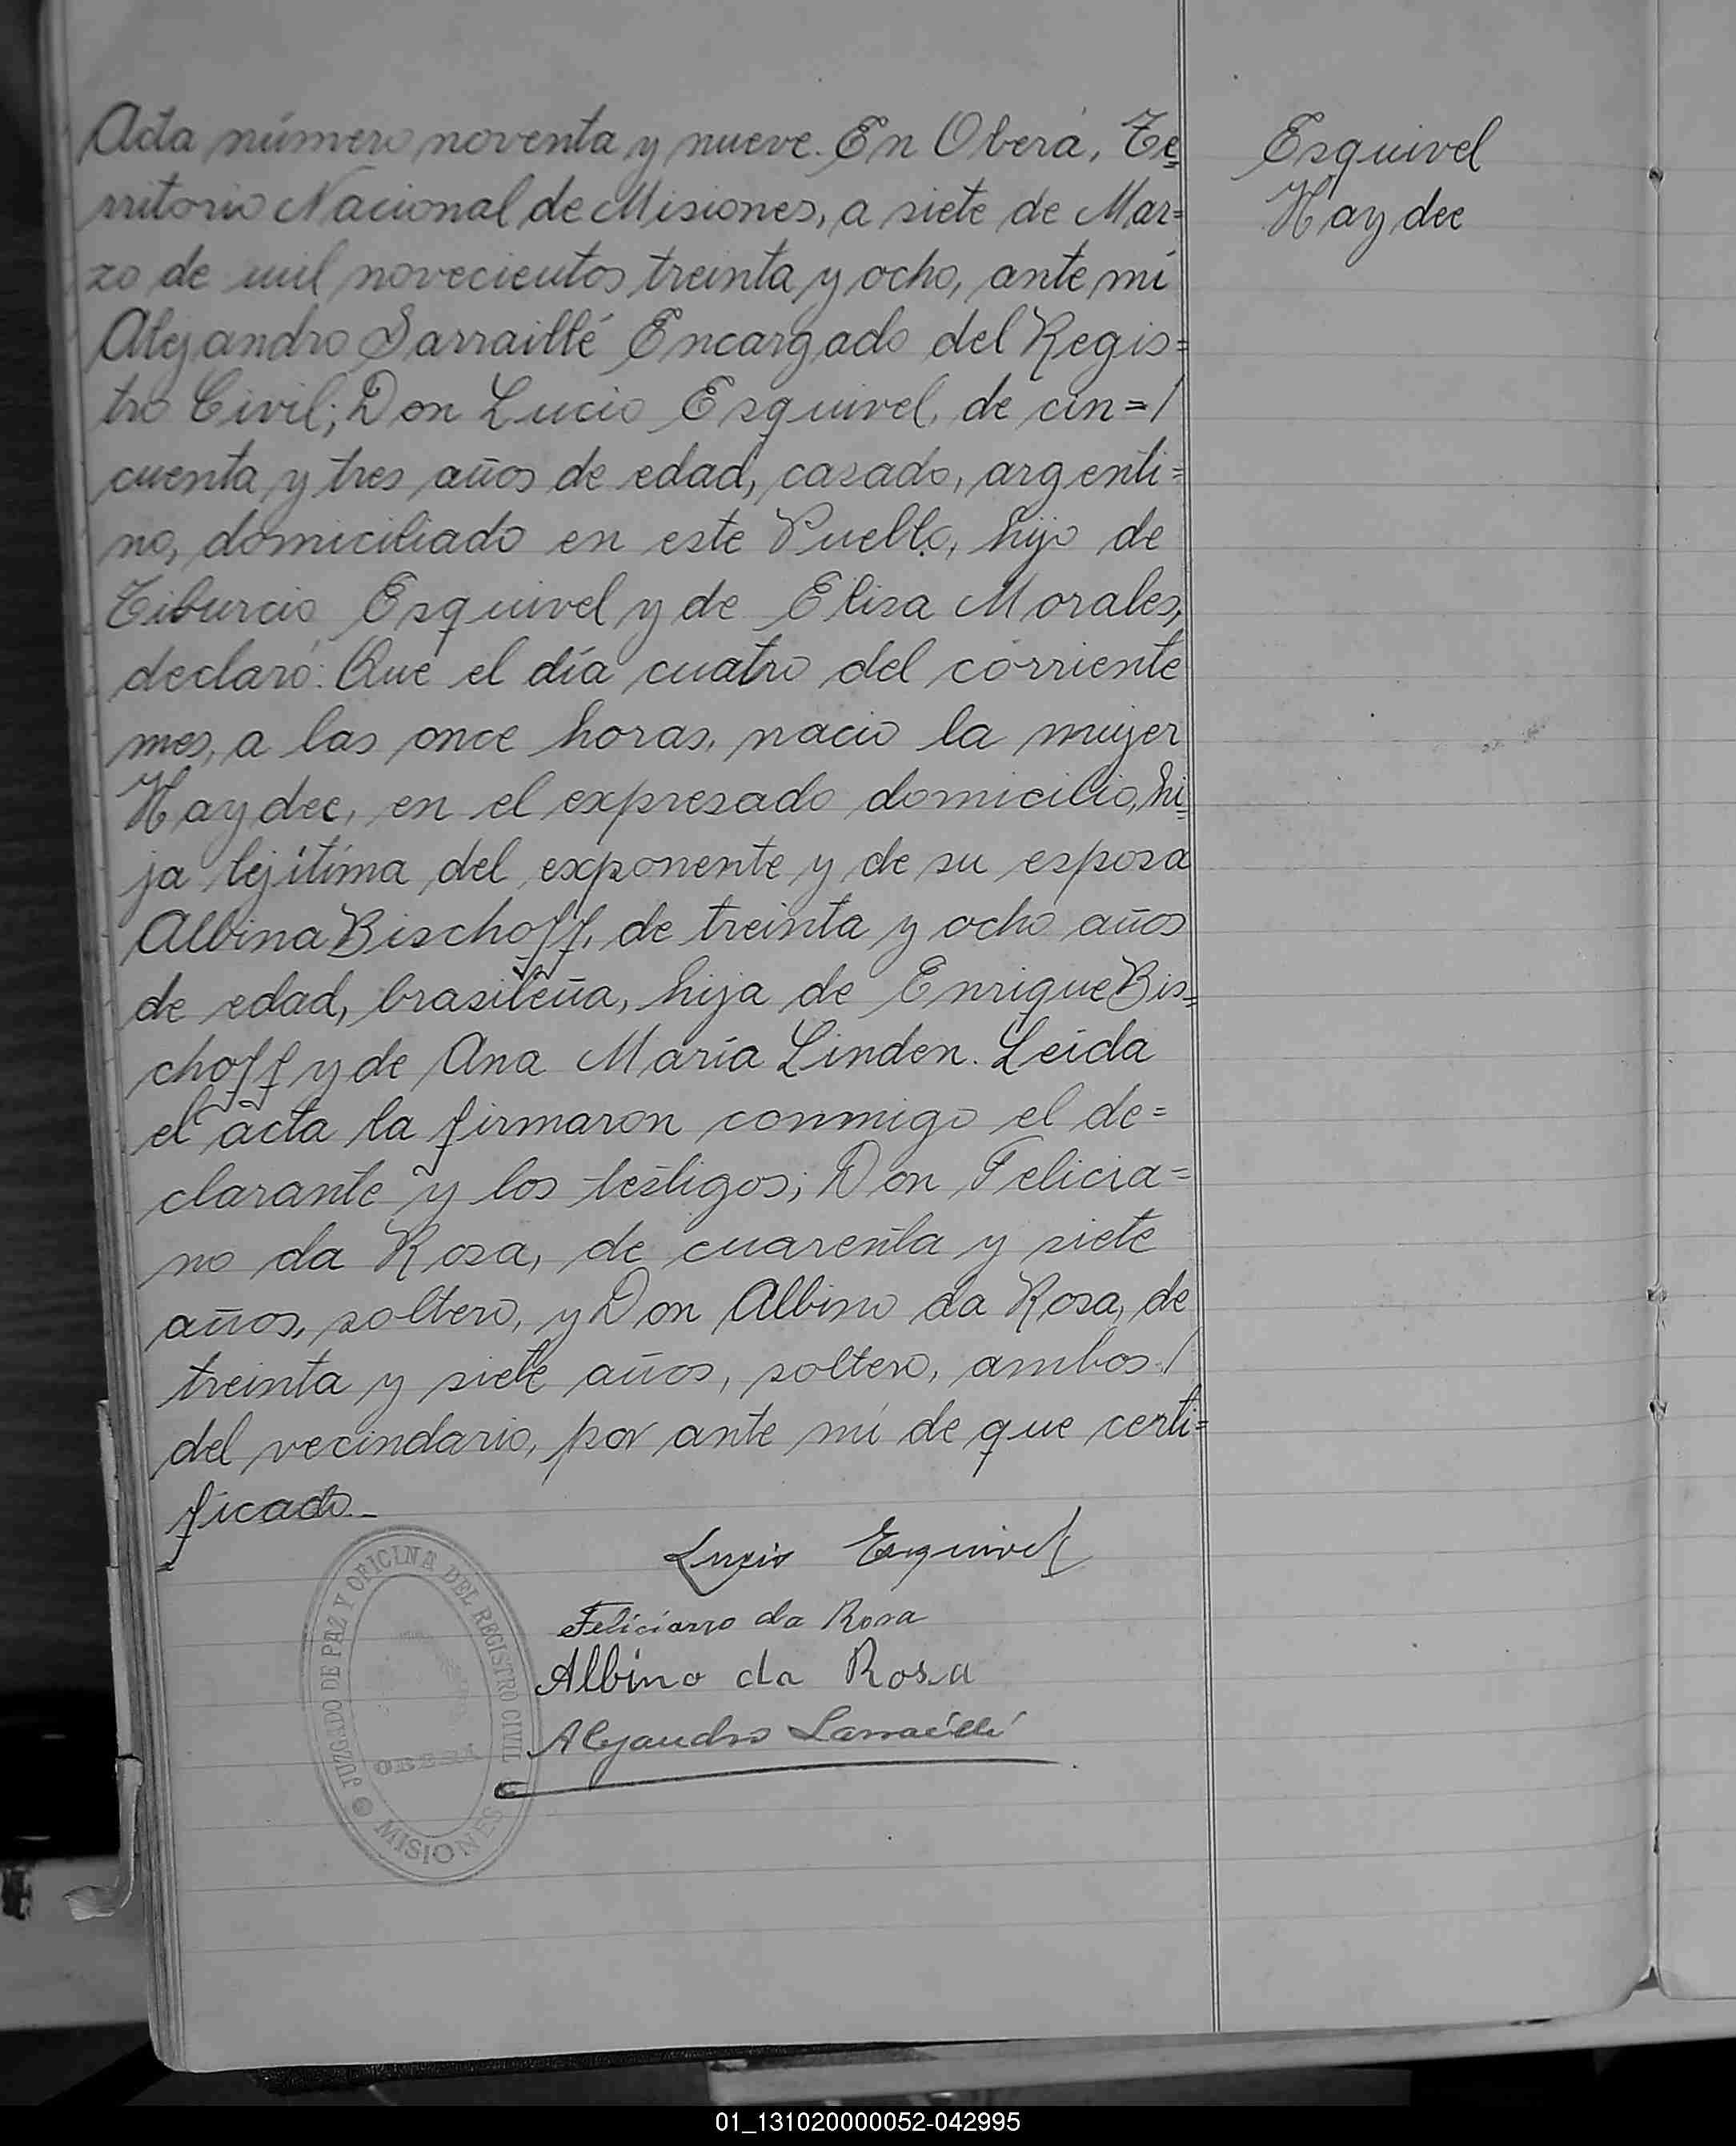 Acta número noventa y nueve. En Oberá, Te=
rritorio Nacional de Misiones, a siete de Mar=
zo de mil novecientos treinta y ocho, ante mí
Alejandro Sarraillé Encargado del Regis=
tro Civil; Don Lucio Esquivel, de cin=/
cuenta y tres años de edad, casado, argenti=
no, domiciliado en este Pueblo, hijo de
Tiburcio Esquivel y de Elisa Morales,
declaró: Que el día cuatro del corriente
mes, a las once horas, nació la mujer
Haydee, en el expresado domicilio, hi=
ja lejítima del exponente y de su esposa
Albina Bischoff, de treinta y ocho años
de edad, brasileña, hija de Enrique Bis=
choff y de Ana María Linden. Leida
el acta la firmaron conmigo el de=
clarante y los testigos; Don Felicia=
no da Rosa, de cuarenta y siete
años, soltero, y Don Albino da Rosa, de
treinta y siete años, soltero, ambos/
del vecindario, por ante mí de que certi=
ficado.
Esquivel
Haydee
Lucio Esquivel
Feliciano da Rosa
Albino da Rosa
Alejandro Sarraillé
JUZGADO DE PAZ Y OFICINA DEL REGISTRO CIVIL
OBERA
MISIONES
01_131020000052-042995